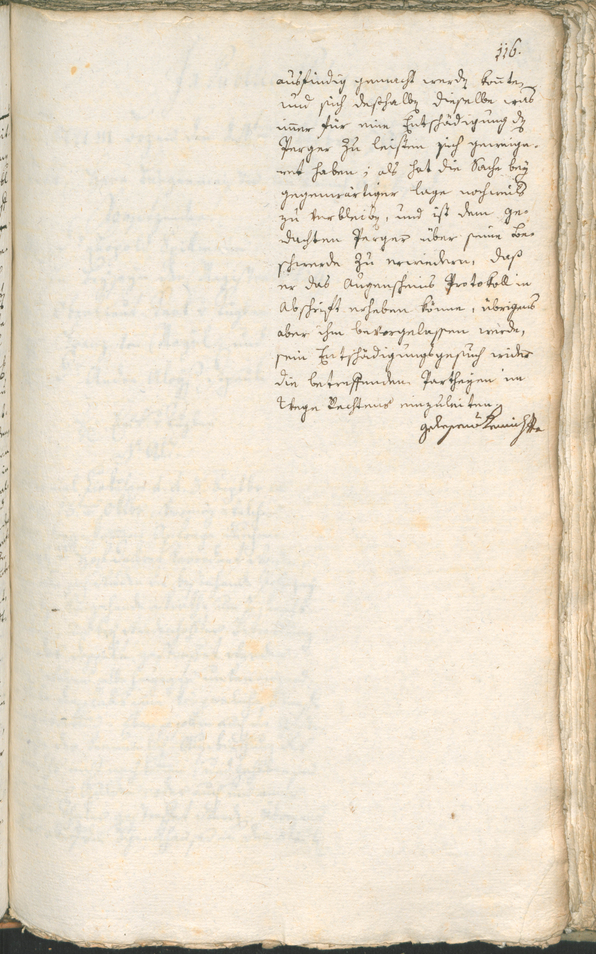 116.
ausfindig gemacht werden konnte,
und sich deßhalben dieselbe was
immer für eine Entschädigung dem
Perger zu leisten sich geweige-
ret haben; als hat die Sache bey
gegenwärtiger lage
zu verbleiben, und ist dem ge-
dachten Perger über seine Be-
schwerde zu erwiedern, daß
er das Augenscheins Protokoll in
Abschrift erheben könne, übrigens
aber ihm bevorgelassen werde,
sein Entschädigungsgesuch wider
die betreffenden Partheyen im
Wege Rechtens einzuleiten.